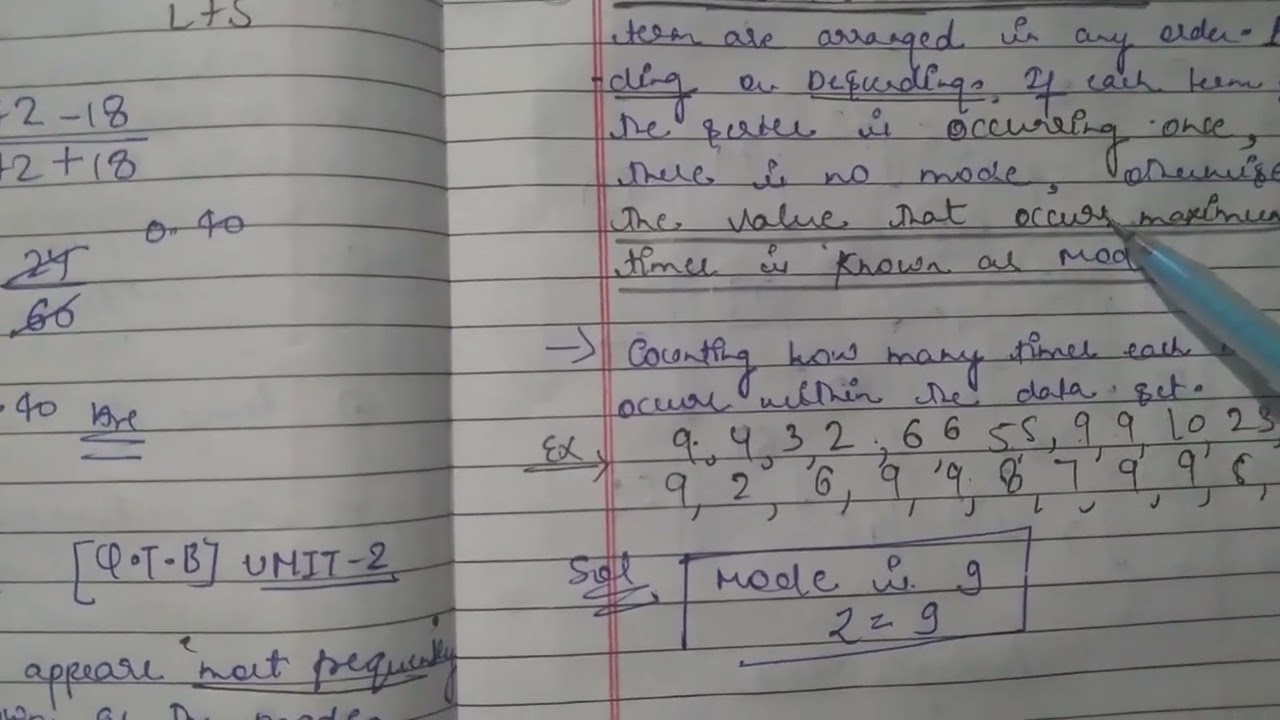 L+S
+2 -18
+2 + 18
24
66
0.40
.40 Ans
[Q.T.B] UNIT-2
appeare "most frequently"
term are arranged in any order.
ding or Descending. If each term
the series is occurring once,
there is no mode, otherwise
the value that occurs maximum
times is known as Mod
→ Counting how many times each
occur within the data set.
Ex → 9, 4, 3, 2, 6 6 5 5, 9, 9, 10, 2 3,
9, 2, 6, 9, 9, 8, 7, 9, 9, 6,
Sol
Mode is 9
Z = 9